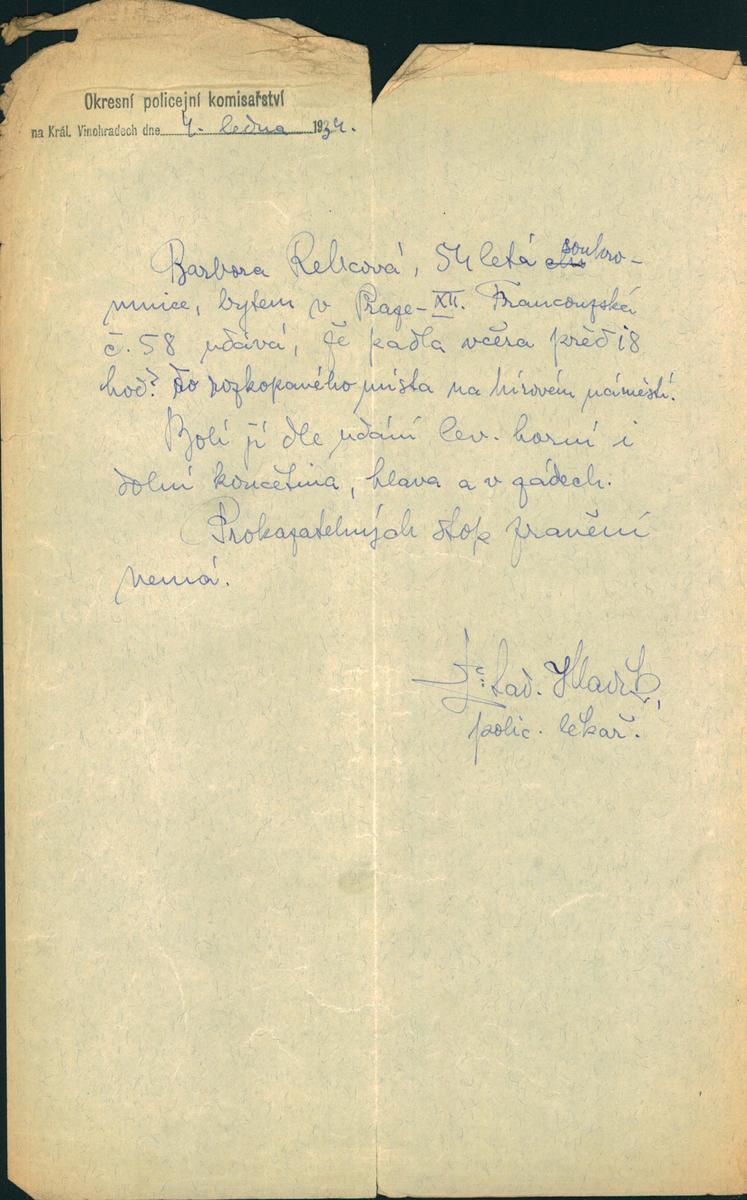 Okresní policejní komisařství
na Král. Vinohradech dne 4. ledna 1934.
Barbora Rebcová, 54 letá soukro-
mnice, bytem v Praze-XII. Francouzská
č. 58 udává, že padla včera před 18
hod. do rozkopaného místa na Mírovém náměstí.
Bolí jí dle udání lev. horní i
dolní končetina, hlava a v zádech.
Prokazatelných stop zranění
nemá.
Lad.
polic. lékař.